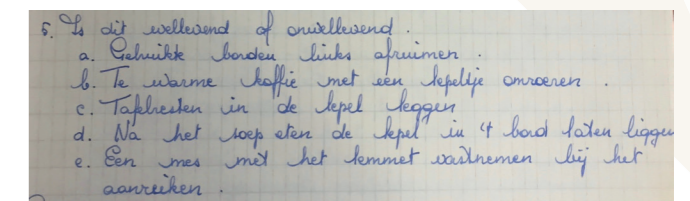 5. Is dit wellevend of onwellevend.
a. Gebruikte borden links afruimen.
b. Te warme koffie met een lepeltje omroeren.
c. Tafelresten in de lepel leggen
d. Na het soep eten de lepel in 't bord laten liggen
e. Een mes met het lemmet vastnemen bij het
aanreiken.